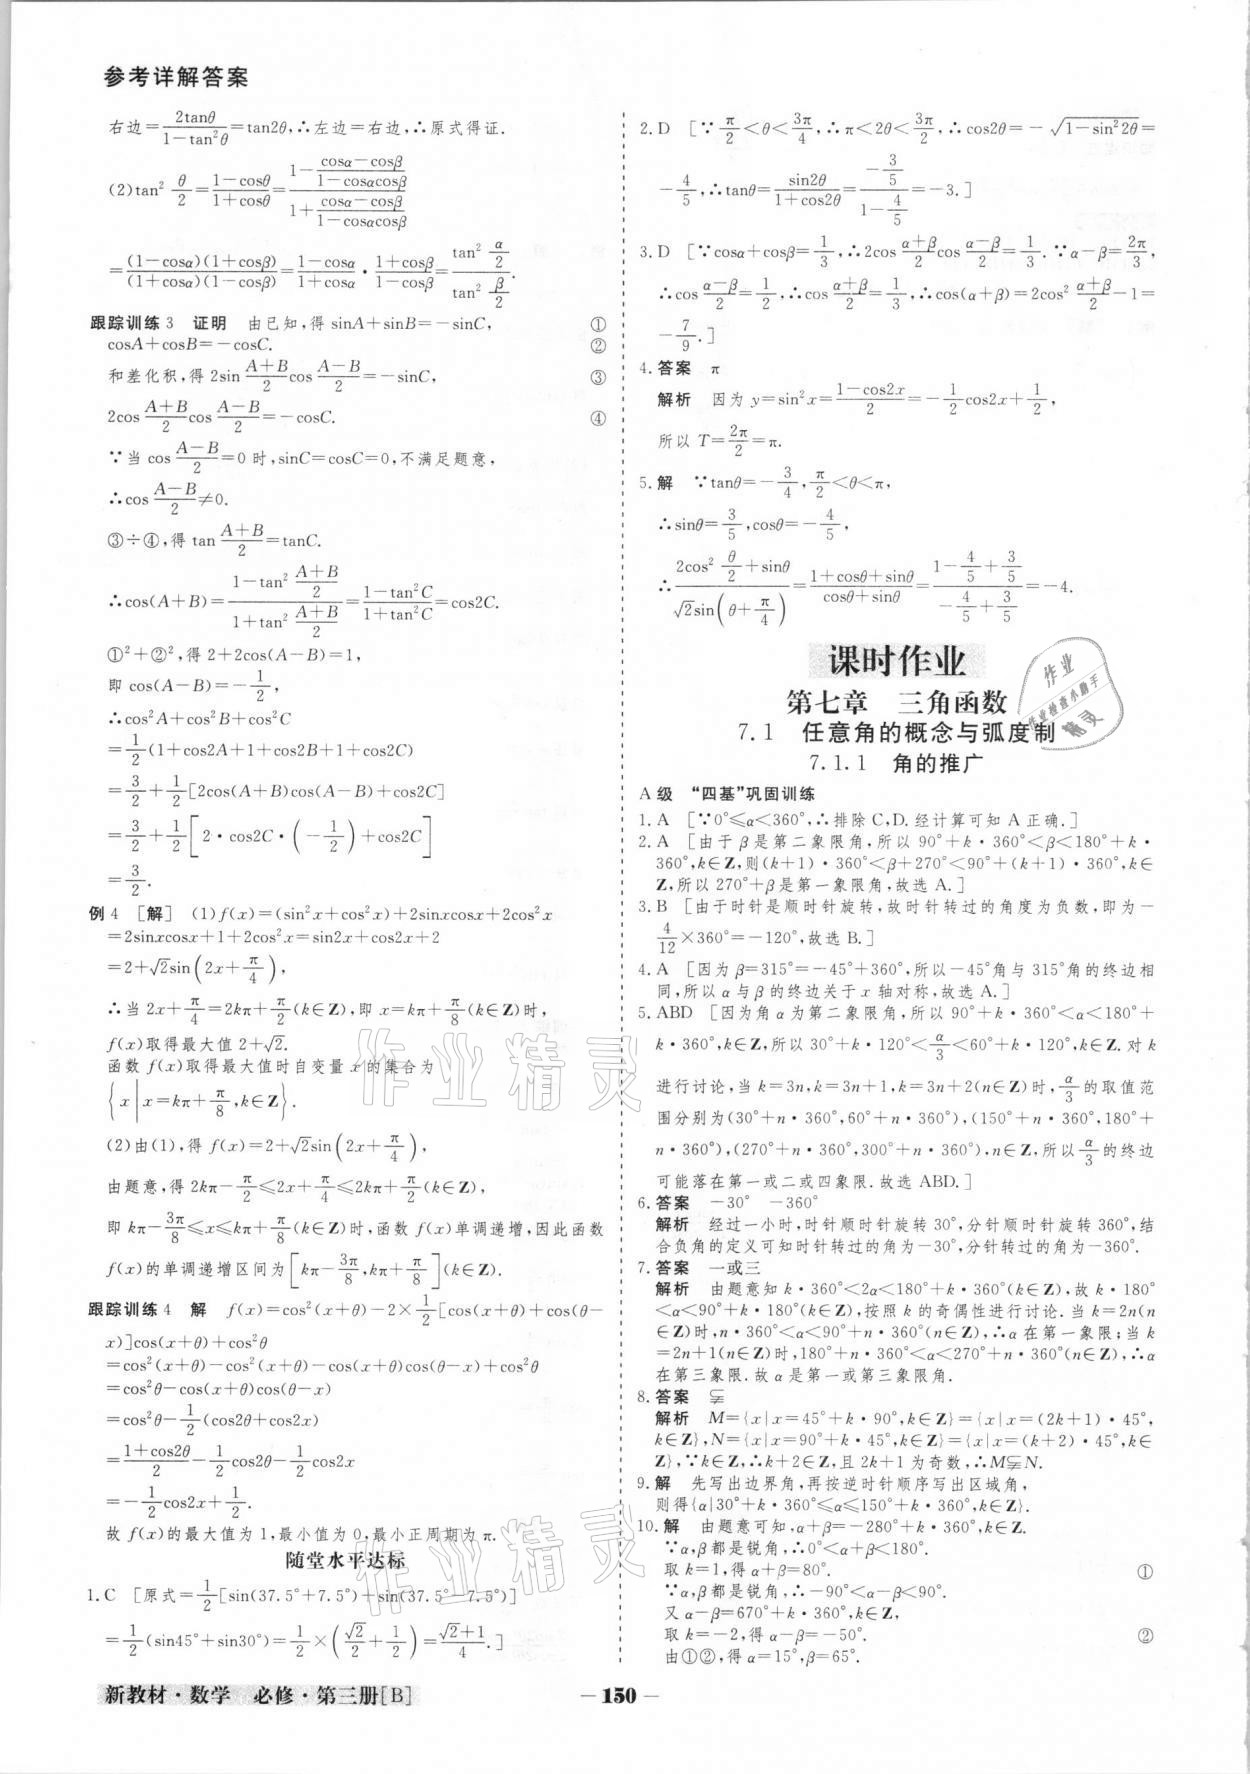 参考详解答案
右边=\frac{2tanθ}{1-tan²θ}=tan2θ,∴左边=右边,∴原式得证.
(2)tan²\frac{θ}{2}=\frac{1-cosθ}{1+cosθ}=\frac{1-\frac{cosα-cosβ}{1-cosαcosβ}}{1+\frac{cosα-cosβ}{1-cosαcosβ}}
=\frac{(1-cosα)(1+cosβ)}{(1+cosα)(1-cosβ)}=\frac{1-cosα}{1+cosα}·\frac{1+cosβ}{1-cosβ}=\frac{tan²\frac{α}{2}}{tan²\frac{β}{2}}.
跟踪训练3 证明 由已知,得sinA+sinB=-sinC, ①
cosA+cosB=-cosC. ②
和差化积,得2sin\frac{A+B}{2}cos\frac{A-B}{2}=-sinC, ③
2cos\frac{A+B}{2}cos\frac{A-B}{2}=-cosC. ④
∵当cos\frac{A-B}{2}=0时,sinC=cosC=0,不满足题意,
∴cos\frac{A-B}{2}≠0.
③÷④,得tan\frac{A+B}{2}=tanC.
∴cos(A+B)=\frac{1-tan²\frac{A+B}{2}}{1+tan²\frac{A+B}{2}}=\frac{1-tan²C}{1+tan²C}=cos2C.
①²+②²,得2+2cos(A-B)=1,
即cos(A-B)=-\frac{1}{2},
∴cos²A+cos²B+cos²C
=\frac{1}{2}(1+cos2A+1+cos2B+1+cos2C)
=\frac{3}{2}+\frac{1}{2}[2cos(A+B)cos(A-B)+cos2C]
=\frac{3}{2}+\frac{1}{2}[2·cos2C·(-\frac{1}{2})+cos2C]
=\frac{3}{2}.
例4 [解] (1)f(x)=(sin²x+cos²x)+2sinxcosx+2cos²x
=2sinxcosx+1+2cos²x=sin2x+cos2x+2
=2+√2sin(2x+\frac{π}{4}),
∴当2x+\frac{π}{4}=2kπ+\frac{π}{2}(k∈Z),即x=kπ+\frac{π}{8}(k∈Z)时,
f(x)取得最大值2+√2.
函数f(x)取得最大值时自变量x的集合为
{x|x=kπ+\frac{π}{8},k∈Z}.
(2)由(1),得f(x)=2+√2sin(2x+\frac{π}{4}),
由题意,得2kπ-\frac{π}{2}≤2x+\frac{π}{4}≤2kπ+\frac{π}{2}(k∈Z),
即kπ-\frac{3π}{8}≤x≤kπ+\frac{π}{8}(k∈Z)时,函数f(x)单调递增,因此函数
f(x)的单调递增区间为[kπ-\frac{3π}{8},kπ+\frac{π}{8}](k∈Z).
跟踪训练4 解 f(x)=cos²(x+θ)-2×\frac{1}{2}[cos(x+θ)+cos(θ-
x)]cos(x+θ)+cos²θ
=cos²(x+θ)-cos²(x+θ)-cos(x+θ)cos(θ-x)+cos²θ
=cos²θ-cos(x+θ)cos(θ-x)
=cos²θ-\frac{1}{2}(cos2θ+cos2x)
=\frac{1+cos2θ}{2}-\frac{1}{2}cos2θ-\frac{1}{2}cos2x
=-\frac{1}{2}cos2x+\frac{1}{2}.
故f(x)的最大值为1,最小值为0,最小正周期为π.
随堂水平达标
1.C [原式=\frac{1}{2}[sin(37.5°+7.5°)+sin(37.5°-7.5°)]
=\frac{1}{2}(sin45°+sin30°)=\frac{1}{2}×(\frac{√2}{2}+\frac{1}{2})=\frac{√2+1}{4}.]
2.D [∵\frac{π}{2}<θ<\frac{3π}{4},∴π<2θ<\frac{3π}{2},∴cos2θ=-√(1-sin²2θ)=
-\frac{4}{5},∴tanθ=\frac{sin2θ}{1+cos2θ}=\frac{-\frac{3}{5}}{1-\frac{4}{5}}=-3.]
3.D [∵cosα+cosβ=\frac{1}{3},∴2cos\frac{α+β}{2}cos\frac{α-β}{2}=\frac{1}{3}.∵α-β=\frac{2π}{3},
∴cos\frac{α-β}{2}=\frac{1}{2},∴cos\frac{α+β}{2}=\frac{1}{3},∴cos(α+β)=2cos²\frac{α+β}{2}-1=
-\frac{7}{9}.]
4.答案 π
解析 因为y=sin²x=\frac{1-cos2x}{2}=-\frac{1}{2}cos2x+\frac{1}{2},
所以T=\frac{2π}{2}=π.
5.解 ∵tanθ=-\frac{3}{4},\frac{π}{2}<θ<π,
∴sinθ=\frac{3}{5},cosθ=-\frac{4}{5},
∴\frac{2cos²\frac{θ}{2}+sinθ}{√2sin(θ+\frac{π}{4})}=\frac{1+cosθ+sinθ}{cosθ+sinθ}=\frac{1-\frac{4}{5}+\frac{3}{5}}{-\frac{4}{5}+\frac{3}{5}}=-4.
课时作业
第七章 三角函数
7.1 任意角的概念与弧度制
7.1.1 角的推广
A级 “四基”巩固训练
1.A [∵0°≤α<360°,∴排除C,D.经计算可知A正确.]
2.A [由于β是第二象限角,所以90°+k·360°<β<180°+k·
360°,k∈Z,则(k+1)·360°<β+270°<90°+(k+1)·360°,k∈
Z,所以270°+β是第一象限角,故选A.]
3.B [由于时针是顺时针旋转,故时针转过的角度为负数,即为-
\frac{4}{12}×360°=-120°,故选B.]
4.A [因为β=315°=-45°+360°,所以-45°角与315°角的终边相
同,所以α与β的终边关于x轴对称,故选A.]
5.ABD [因为角α为第二象限角,所以90°+k·360°<α<180°+
k·360°,k∈Z,所以30°+k·120°<\frac{α}{3}<60°+k·120°,k∈Z.对k
进行讨论,当k=3n,k=3n+1,k=3n+2(n∈Z)时,\frac{α}{3}的取值范
围分别为(30°+n·360°,60°+n·360°),(150°+n·360°,180°+
n·360°),(270°+n·360°,300°+n·360°),n∈Z,所以\frac{α}{3}的终边
可能落在第一或二或四象限.故选ABD.]
6.答案 -30° -360°
解析 经过一小时,时针顺时针旋转30°,分针顺时针旋转360°,结
合负角的定义可知时针转过的角为-30°,分针转过的角为-360°.
7.答案 一或三
解析 由题意知k·360°<2α<180°+k·360°(k∈Z),故k·180°
<α<90°+k·180°(k∈Z),按照k的奇偶性进行讨论.当k=2n(n
∈Z)时,n·360°<α<90°+n·360°(n∈Z),∴α在第一象限;当k=
2n+1(n∈Z)时,180°+n·360°<α<270°+n·360°(n∈Z),∴α
在第三象限.故α是第一或第三象限角.
8.答案 ⫋
解析 M={x|x=45°+k·90°,k∈Z}={x|x=(2k+1)·45°,
k∈Z},N={x|x=90°+k·45°,k∈Z}={x|x=(k+2)·45°,k∈
Z},∵k∈Z,∴k+2∈Z,且2k+1为奇数,∴M⫋N.
9.解 先写出边界角,再按逆时针顺序写出区域角,
则得{α|30°+k·360°≤α≤150°+k·360°,k∈Z}.
10.解 由题意可知,α+β=-280°+k·360°,k∈Z.
∵α,β都是锐角,∴0°<α+β<180°.
取k=1,得α+β=80°. ①
∵α,β都是锐角,∴-90°<α-β<90°.
又α-β=670°+k·360°,k∈Z,
取k=-2,得α-β=-50°. ②
由①②,得α=15°,β=65°.
作业
作业检查小助手
精灵
作业精灵
作业精灵
新教材·数学 必修·第三册[B]
— 150 —